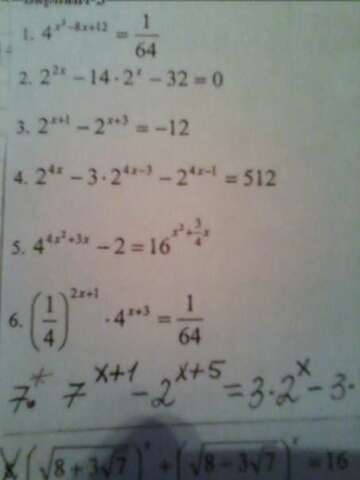 1. 4^{x²−8x+12} = \frac{1}{64}
2. 2^{2x} − 14 · 2^x − 32 = 0
3. 2^{x+1} − 2^{x+3} = −12
4. 2^{4x} − 3 · 2^{4x−3} − 2^{4x−1} = 512
5. 4^{4x²+3x} − 2 = 16^{x²+\frac{3}{4}x}
6. (\frac{1}{4})^{2x+1} · 4^{x+3} = \frac{1}{64}
7.* 7^{x+1} − 2^{x+5} = 3 · 2^x − 3 ·
(√8 + 3√7)^x + (√8 − 3√7)^x = 16